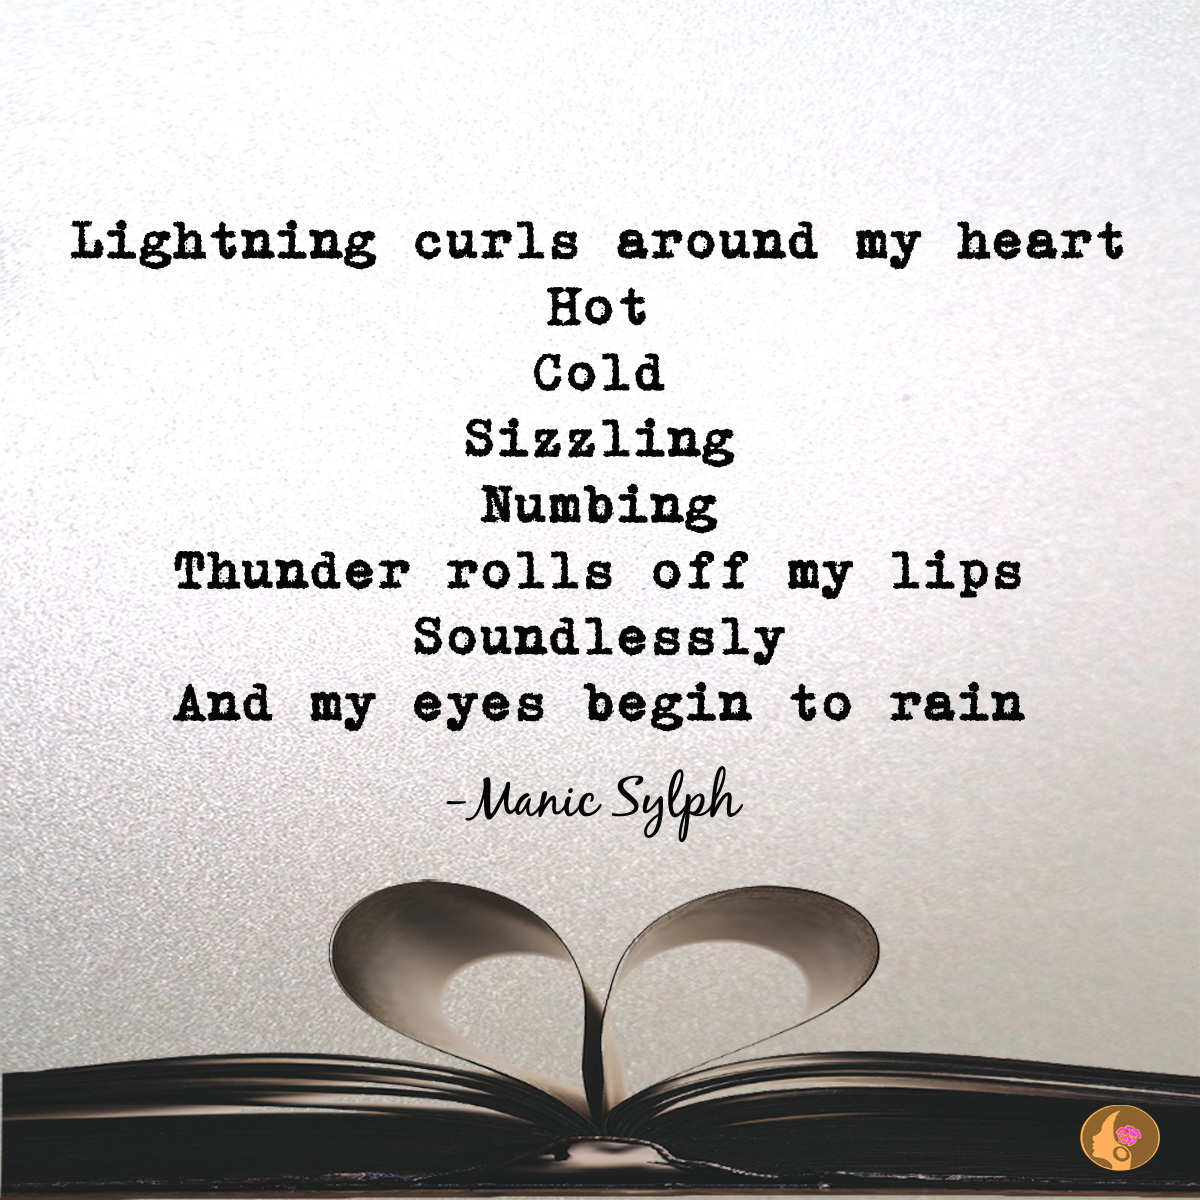 Lightning curls around my heart
Hot
Cold
Sizzling
Numbing
Thunder rolls off my lips
Soundlessly
And my eyes begin to rain
-Manic Sylph